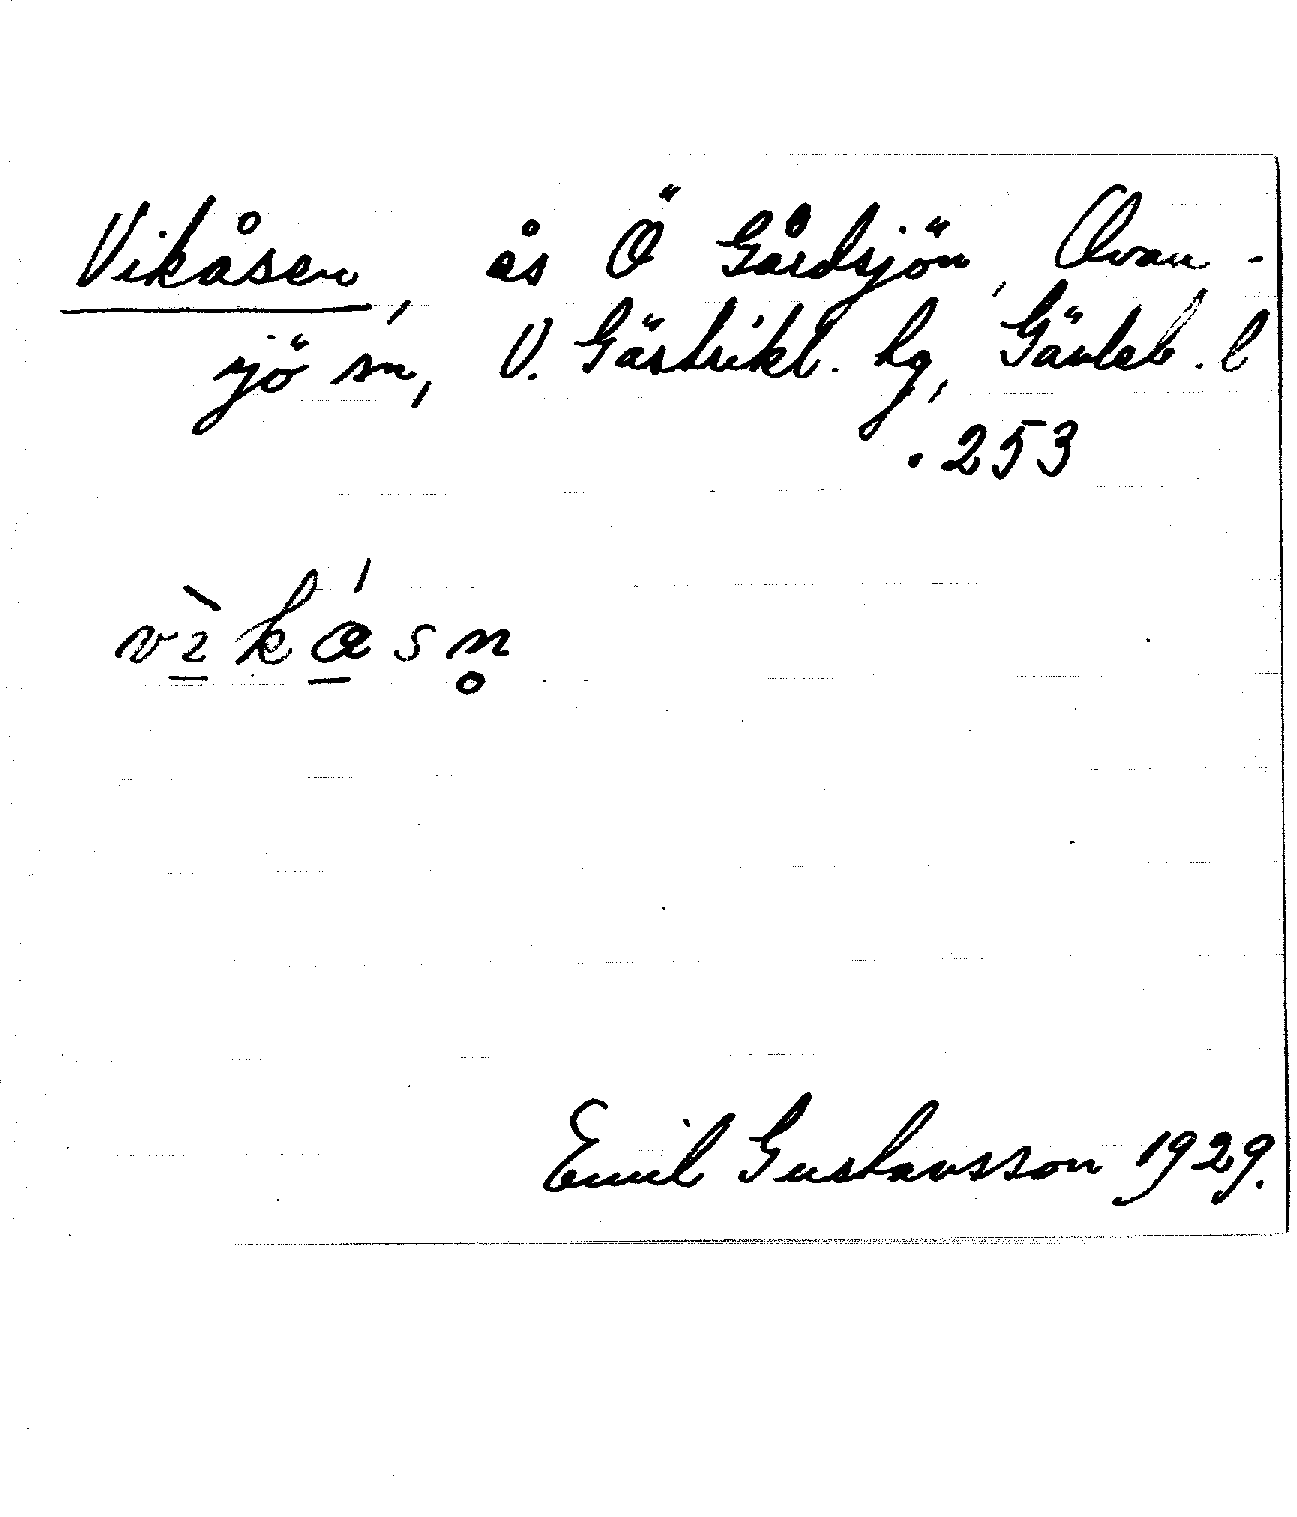 Vikåsen, ås Ö Gårdsjön, Ovan-
sjö sn, V. Gästrikl. hg, Gävleb. l
. 253
Emil Gustavsson 1929.